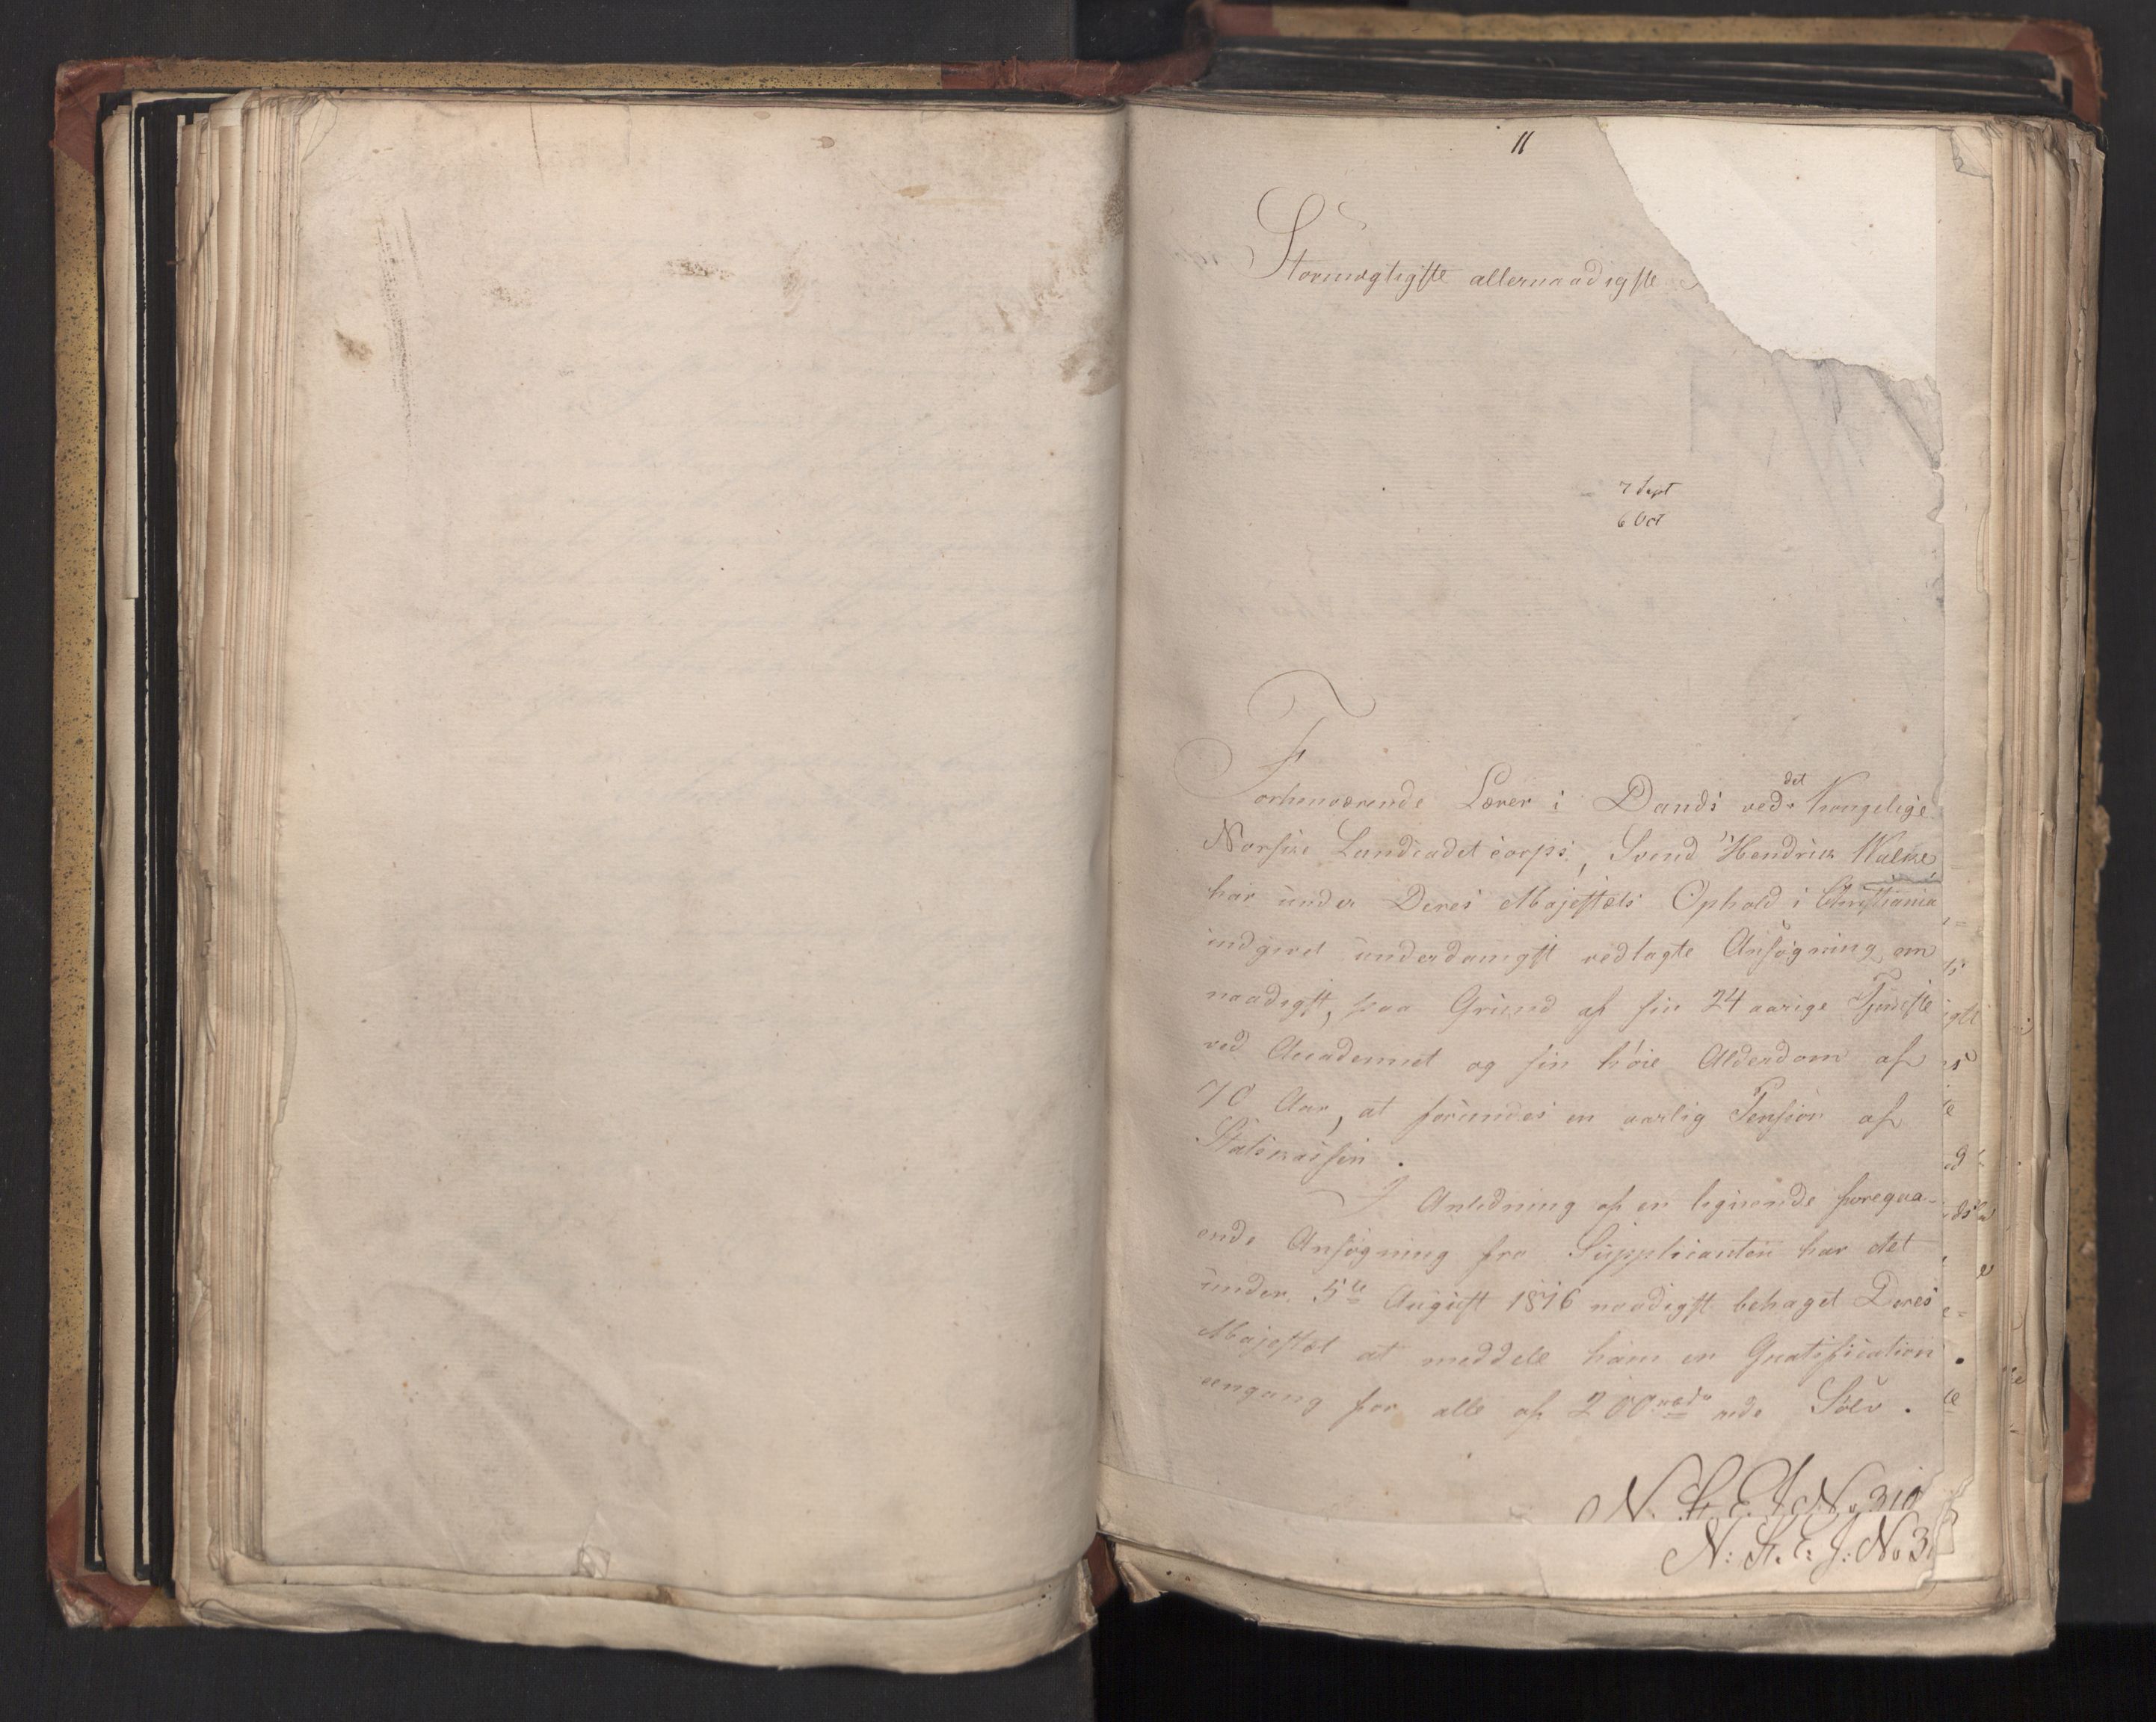 11
Stormægtigste allernaadigste
7 Sept
6 Oct
Forhenværende Lærer i Dands ved det Kongelige
Norske Landcadetcorps, Svend Hendrik Walke
har under Deres Majestæts Ophold i Christiania
indgivet underdanigst vedlagte Ansøgning om
naadigst, paa Grund af sin 24 aarige Tjeneste
ved Academiet og sin høie Alderdom af
70 Aar, at forundes en aarlig Pension af
Statskassen.
I Anledning af en lignende foregaa-
ende Ansøgning fra Supplicanten har det
under 5te August 1816 naadigst behaget Deres
Majestæt at meddele ham en Gratification
eengang for alle af 200 Sølv.
N. St. E. J. No 310
N: St. E: J: No 3